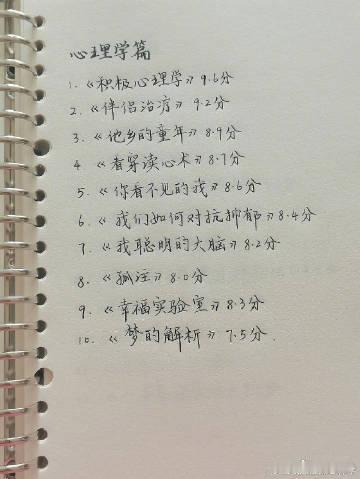 心理学篇
1.《积极心理学》9.6分
2.《伴侣治疗》9.2分
3.《他乡的童年》8.9分
4.《看穿读心术》8.7分
5.《你看不见的我》8.6分
6.《我们如何对抗抑郁》8.4分
7.《我聪明的大脑》8.2分
8.《孤注》8.0分
9.《幸福实验室》8.3分
10.《梦的解析》7.5分.